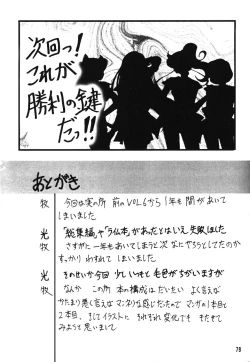 次回っ!
これが
勝利の鍵
だっ!!
あとがき
牧 今回は実の所 前のVOL6から1年も間があいて
しまいました
光 「総集編」や があったとはいえ 失敗しました
牧 さすがに一年もあいてしまうと次なにやろうとしてたのか
すっかりわすれて しまいます
光 そのせいか今回 少しいつもと毛色がちがいますが
牧 なんか この所 本の構成は だいたい よく言えば
かたまり 悪く言えば マンネリな感じだったので マンガの1本目と
2本目、そしてイラストに それぞれ変化でも もたせて
みようと思いまして
79